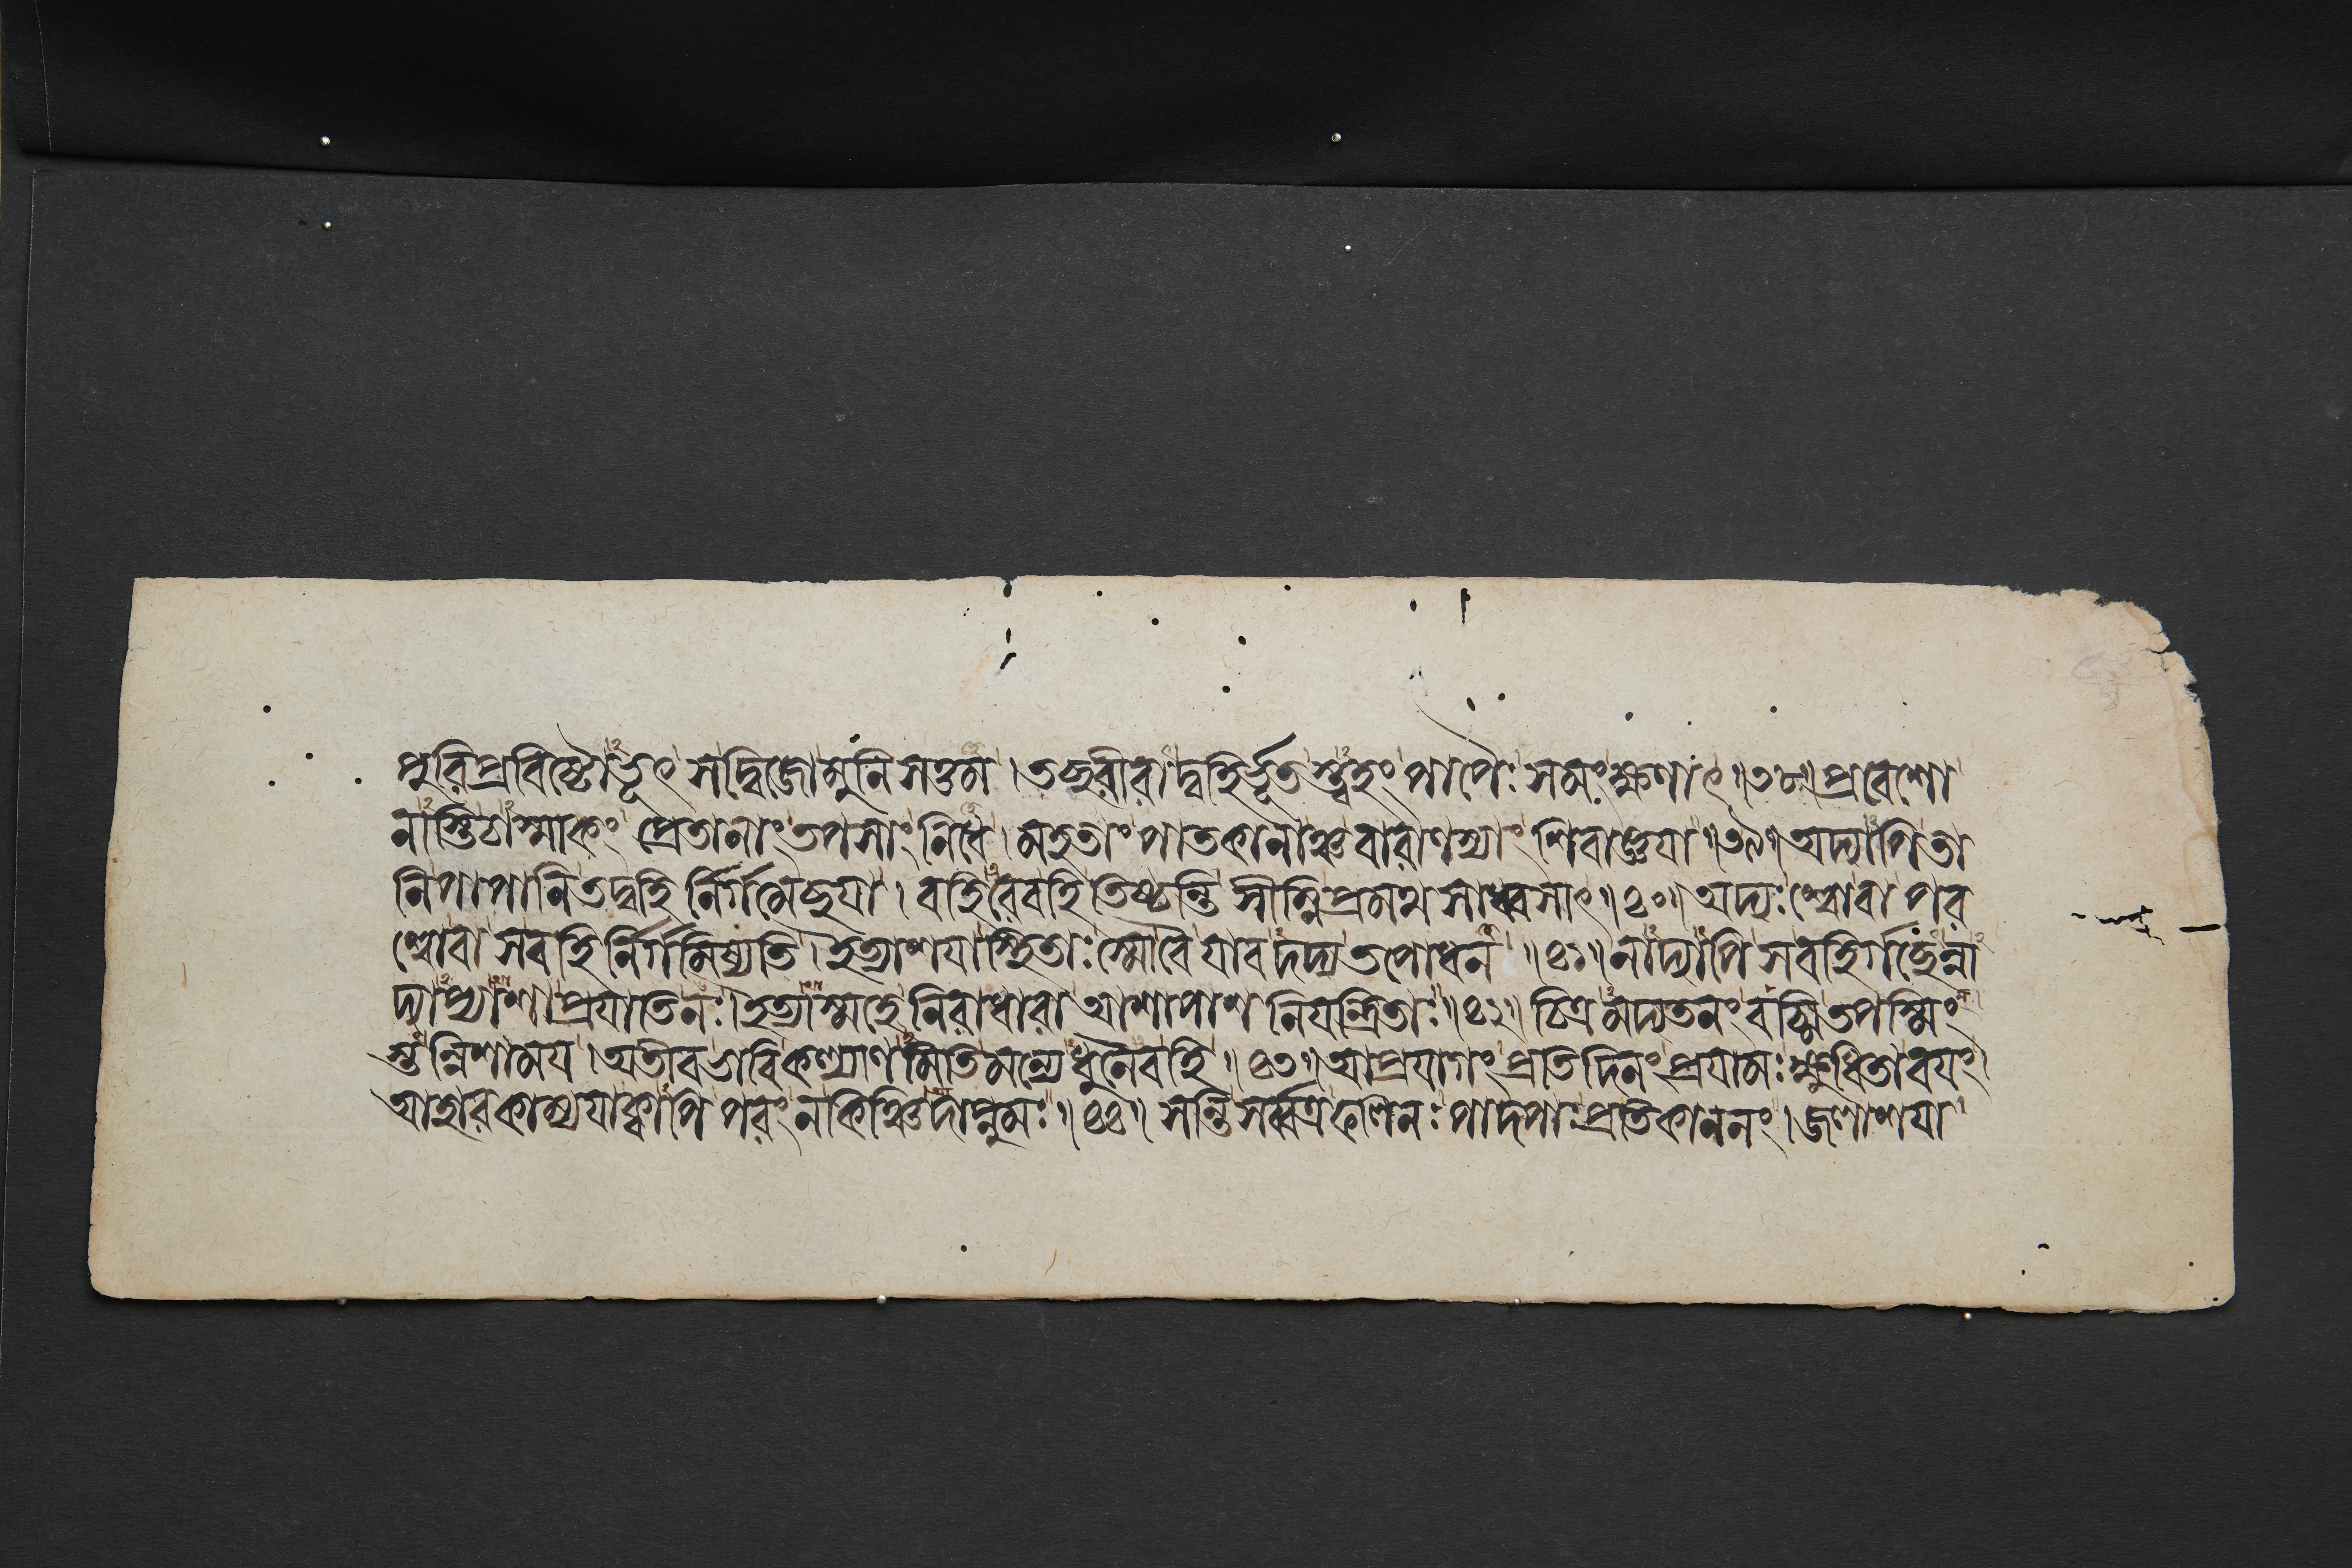 পুরিপ্রবিষ্টোঽভূৎ সদ্বিজোমুনিসত্তম । তচ্ছরীরাদ্বহির্ভূতস্ত্বহং পাপৈঃ সমংক্ষণাৎ ॥ ৩৮ ॥ প্রবেশো
নাস্তিচাস্মাকং প্রেতানাং তপসাং নিধে । মহতাং পাতকানাঞ্চ বারাণস্যাং শিবাজ্ঞয়া ॥ ৩৯ ॥ অদ্যাপিতা
নিপাপানিতদ্বহি র্নির্গমেচ্ছয়া । বহিরেবহি তিষ্ঠন্তি সীম্নিপ্রমথসাধ্বসাৎ ॥ ৪০ ॥ অদ্যঃ শ্বোবা পর
শ্বোবা সবহি র্নির্গমিষ্যতি । ইত্যাশয়াস্থিতাঃ স্মোবৈ যাবদদ্য তপোধন ॥ ৪১ ॥ নাদ্যাপি সবহির্গচ্ছেন্না
দ্যাপ্যাশাপ্রযাতিনঃ । ইত্যাস্মহে নিরাধারা আশাপাশ নিয়ন্ত্রিতাঃ ॥ ৪২ ॥ চিত্রমদ্যতনং বচ্মি তপস্মিং
স্তন্নিশাময় । অতীবভাবিকল্যাণমিতিমন্যেধুনৈবহি ॥ ৪৩ ॥ আপ্রয়াগং প্রতিদিনং প্রয়ামঃ ক্ষুধিতাবয়ং ।
আহারকাম্যয়াক্কাপি পরং নকিঞ্চিদাপ্নুমঃ ॥ ৪৪ ॥ সন্তি সর্ব্বত্রফলিনঃ পাদপাঃ প্রতিকাননং । জলাশয়া